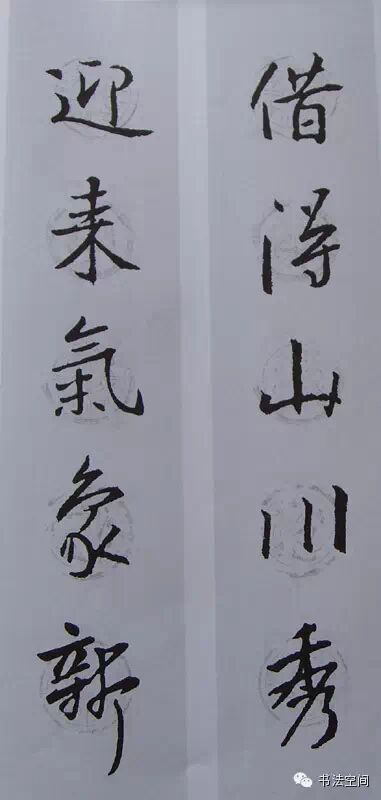 借得山川秀
迎来氣象新
书法空间